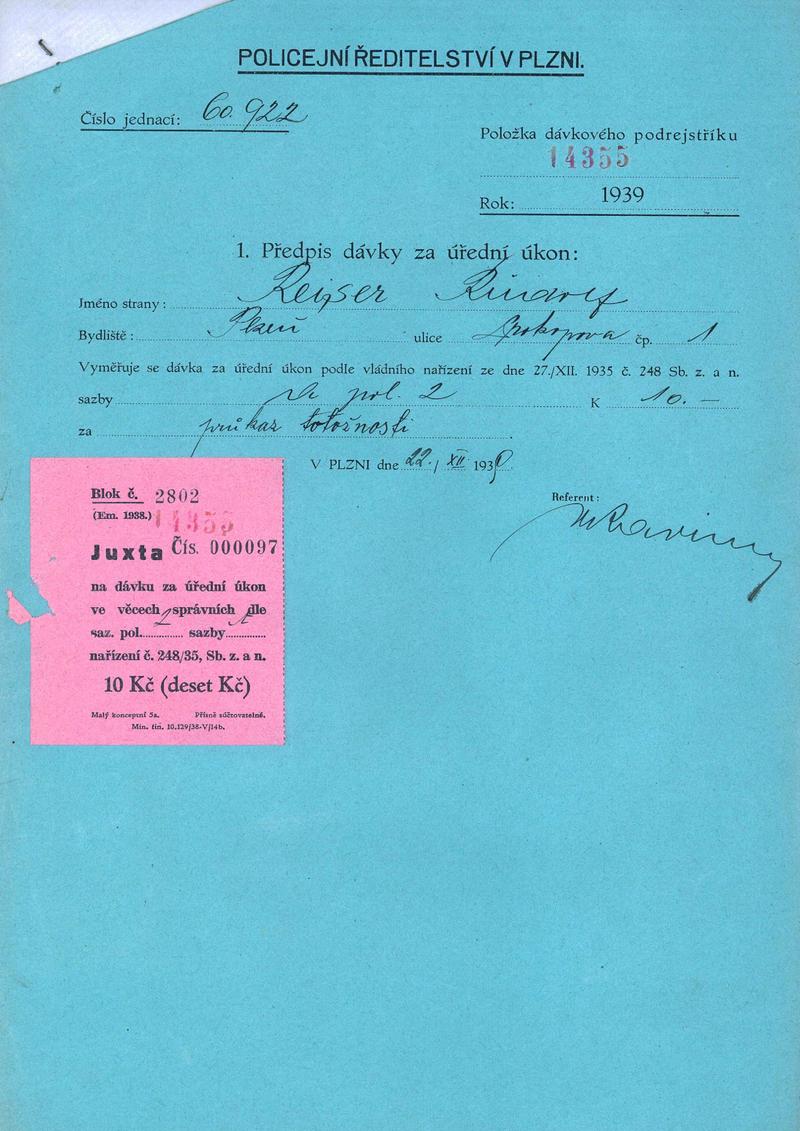 POLICEJNÍ ŘEDITELSTVÍ V PLZNI.
Číslo jednací: 60.922
Položka dávkového podrejstříku
14355
Rok: 1939
1. Předpis dávky za úřední úkon:
Jméno strany: Reiser Rudolf
Bydliště: Plzeň ulice Prokopova čp. 1
Vyměřuje se dávka za úřední úkon podle vládního nařízení ze dne 27./XII. 1935 č. 248 Sb. z. a n.
sazby pol. 2 K 10.–
za průkaz totožnosti
V PLZNI dne 22./XII. 1939.
Referent:
Blok č. 2802
(Em. 1938.) 14355
Juxta Čís. 000097
na dávku za úřední úkon
ve věcech správních dle
saz. pol. 2 sazby A
nařízení č. 248/35, Sb. z. a n.
10 Kč (deset Kč)
Malý konceptní 5a. Přísně súčtovatelné.
Min. fin. 10.129/38-V/14b.